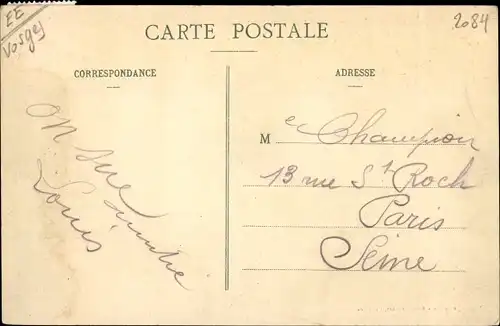 EE
Vosges
CARTE POSTALE
2084
CORRESPONDANCE
ADRESSE
on sue
Louis
Mel Champion
13 rue St Roch
Paris
Seine